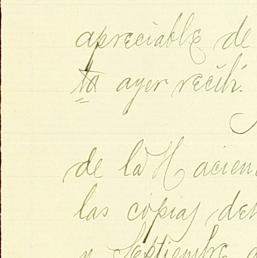 apreciable de
ta ayer recibí.
de la Hacien
las copias de
y Septiembre